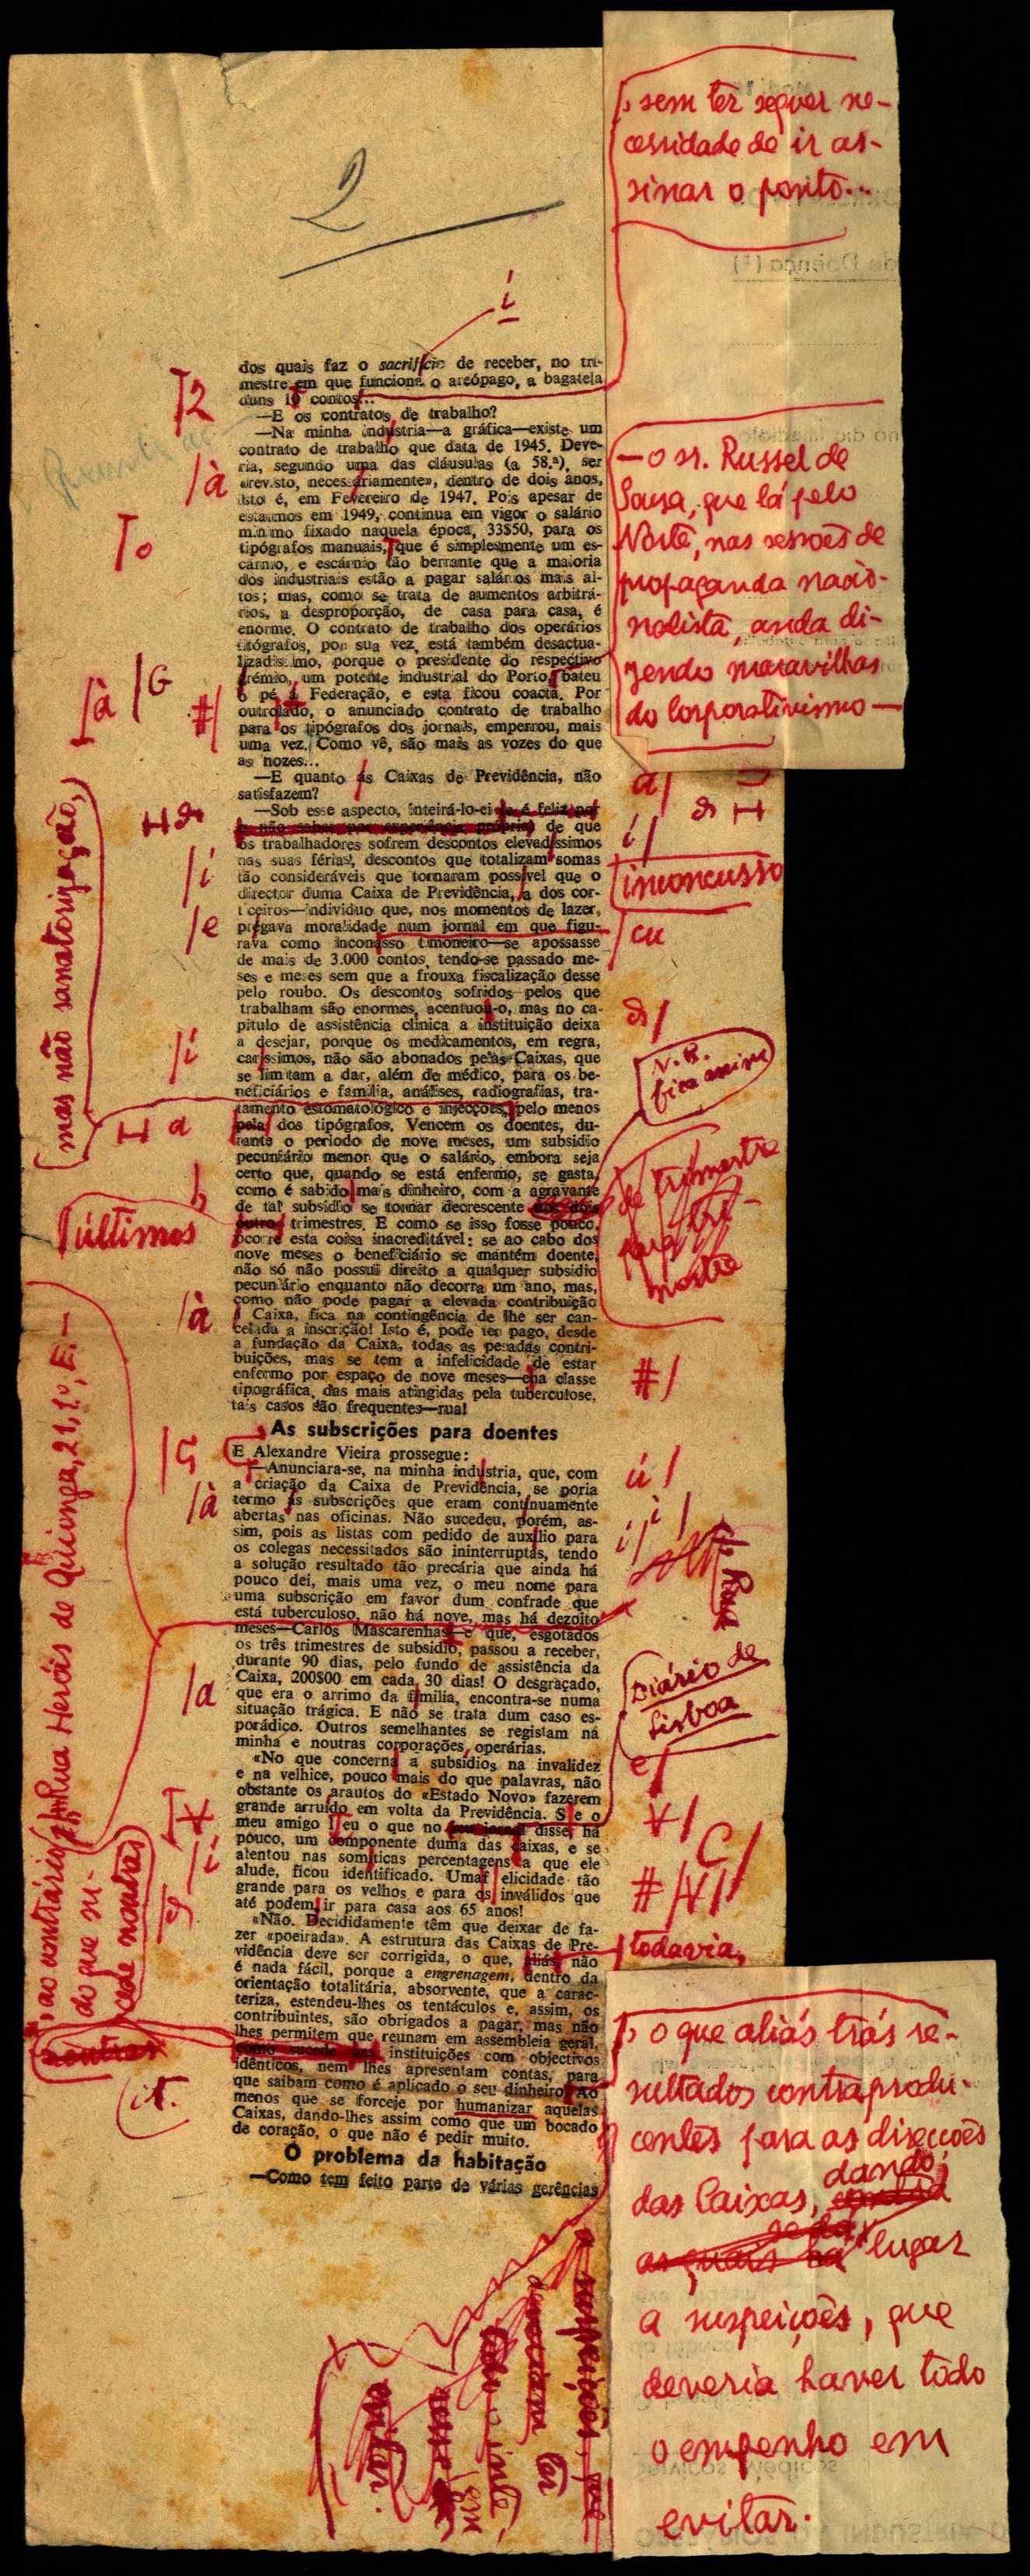 , sem ter sequer ne-
cessidade de ir as-
sinar o ponto...
2
i
dos quais faz o sacrifício de receber, no tri-
mestre em que funciona o areópago, a bagatela
duns 1 contos...
—E os contratos de trabalho?
—Na minha indústria—a gráfica—existe um
contrato de trabalho que data de 1945. Deve-
ria, segundo uma das cláusulas (a 58.ª), ser
«revisto, necessáriamente», dentro de dois anos,
isto é, em Fevereiro de 1947. Pois apesar de
estarmos em 1949, continua em vigor o salário
mínimo fixado naquela época, 33$50, para os
tipógrafos manuais, que é simplesmente um es-
cárnio, e escárnio tão berrante que a maioria
dos industriais estão a pagar salários mais al-
tos; mas, como se trata de aumentos arbitrá-
rios, a desproporção, de casa para casa, é
enorme. O contrato de trabalho dos operários
litógrafos, por sua vez, está também desactua-
lizadíssimo, porque o presidente do respectivo
grémio, um potente industrial do Porto, bateu
o pé à Federação, e esta ficou coacta. Por
outrolado, o anunciado contrato de trabalho
para os tipógrafos dos jornais, emperrou, mais
uma vez. Como vê, são mais as vozes do que
as nozes...
—E quanto ás Caixas de Previdência, não
satisfazem?
—Sob esse aspecto, inteirá-lo-ei de que
os trabalhadores sofrem descontos elevadíssimos
nas suas férias, descontos que totalizam somas
tão consideráveis que tornaram possível que o
director duma Caixa de Previdência, a dos cor-
ticeiros—indivíduo que, nos momentos de lazer,
prègava moralidade num jornal em que figu-
rava como inconasso timoneiro—se apossasse
de mais de 3.000 contos, tendo-se passado me-
ses e meses sem que a frouxa fiscalização desse
pelo roubo. Os descontos sofridos pelos que
trabalham são enormes, acentuou-o, mas no ca-
pítulo de assistência clínica a instituição deixa
a desejar, porque os medicamentos, em regra,
caríssimos, não são abonados pelas Caixas, que
se limitam a dar, além de médico, para os be-
neficiários e família, análises, radiografias, tra-
tamento estomatológico e injecções, pelo menos
pela dos tipógrafos. Vencem os doentes, du-
rante o período de nove meses, um subsídio
pecuniário menor que o salário, embora seja
certo que, quando se está enfermo, se gasta,
como é sabido mais dinheiro, com a agravante
de tal subsídio se tornar decrescente nos dois
outros trimestres. E como se isso fosse pouco,
ocorre esta coisa inacreditável: se ao cabo dos
nove meses o beneficiário se mantém doente,
não só não possui direito a qualquer subsídio
pecuniário enquanto não decorra um ano, mas,
como não pode pagar a elevada contribuição
à Caixa, fica na contingência de lhe ser can-
celada a inscrição! Isto é, pode ter pago, desde
a fundação da Caixa, todas as pesadas contri-
buições, mas se tem a infelicidade de estar
enfermo por espaço de nove meses—e na classe
tipográfica, das mais atingidas pela tuberculose,
tais casos são frequentes—rua!
As subscrições para doentes
E Alexandre Vieira prossegue:
—Anunciara-se, na minha indústria, que, com
a criação da Caixa de Previdência, se poria
termo ás subscrições que eram contìnuamente
abertas nas oficinas. Não sucedeu, porém, as-
sim, pois as listas com pedido de auxílio para
os colegas necessitados são ininterruptas, tendo
a solução resultado tão precária que ainda há
pouco dei, mais uma vez, o meu nome para
uma subscrição em favor dum confrade que
está tuberculoso, não há nove, mas há dezoito
meses—Carlos Mascarenhas—e que, esgotados
os três trimestres de subsídio, passou a receber,
durante 90 dias, pelo fundo de assistência da
Caixa, 200$00 em cada 30 dias! O desgraçado,
que era o arrimo da família, encontra-se numa
situação trágica. E não se trata dum caso es-
porádico. Outros semelhantes se registam na
minha e noutras corporações operárias.
«No que concerna a subsídios na invalidez
e na velhice, pouco mais do que palavras, não
obstante os arautos do «Estado Novo» fazerem
grande arruído em volta da Previdência. Se o
meu amigo leu o que no disse, há
pouco, um componente duma das caixas, e se
atentou nas somíticas percentagens a que ele
alude, ficou identificado. Umaf elicidade tão
grande para os velhos e para os inválidos que
até podem ir para casa aos 65 anos!
«Não. Decididamente têm que deixar de fa-
zer «poeirada». A estrutura das Caixas de Pre-
vidência deve ser corrigida, o que, aliás, não
é nada fácil, porque a engrenagem, dentro da
orientação totalitária, absorvente, que a carac-
teriza, estendeu-lhes os tentáculos e, assim, os
contribuintes, são obrigados a pagar, mas não
lhes permitem que reunam em assembleia geral,
como sucede nas instituições com objectivos
idênticos, nem lhes apresentam contas, para
que saibam como é aplicado o seu dinheiro. Ao
menos que se forceje por humanizar aquelas
Caixas, dando-lhes assim como que um bocado
de coração, o que não é pedir muito.
O problema da habitação
—Como tem feito parte de várias gerências
—o sr. Russel de
Sousa, que lá pelo
Norte, nas sessões de
propaganda nacio-
nalista, anda di-
zendo maravilhas
do Corporativismo—
inconcusso
cu
N. B.
fica assim
de trimestre
para tri-
mestre
Diário de
Lisboa
todavia,
, o que aliás trás re-
sultados contraprodu-
centes para as direcções
das Caixas, dando
lugar
a suspeições, que
deveria haver todo
o empenho em
evitar.
(mas não sanatorização,)
últimos
Rua Heróis de Quionga, 21, 1.º, E.—
, ao contrário
do que su-
cede noutras
it.